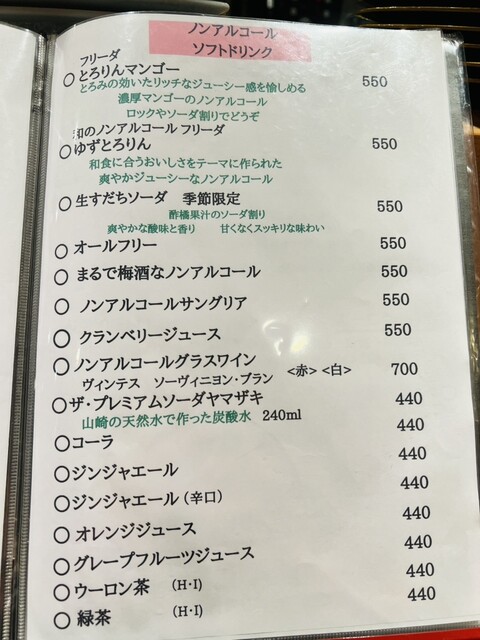 ノンアルコール
ソフトドリンク
フリーダ
○とろりんマンゴー 550
とろみの効いたリッチなジューシー感を愉しめる
濃厚マンゴーのノンアルコール
ロックやソーダ割りでどうぞ
和のノンアルコール フリーダ
○ゆずとろりん 550
和食に合うおいしさをテーマに作られた
爽やかジューシーなノンアルコール
○生すだちソーダ 季節限定 550
酢橘果汁のソーダ割り
爽やかな酸味と香り 甘くなくスッキリな味わい
○オールフリー 550
○まるで梅酒なノンアルコール 550
○ノンアルコールサングリア 550
○クランベリージュース 550
○ノンアルコールグラスワイン <赤> <白> 700
ヴィンテス ソーヴィニヨン・ブラン
○ザ・プレミアムソーダヤマザキ 440
山崎の天然水で作った炭酸水 240ml
○コーラ 440
○ジンジャエール 440
○ジンジャエール（辛口） 440
○オレンジジュース 440
○グレープフルーツジュース 440
○ウーロン茶 （H・I） 440
○緑茶 （H・I） 440